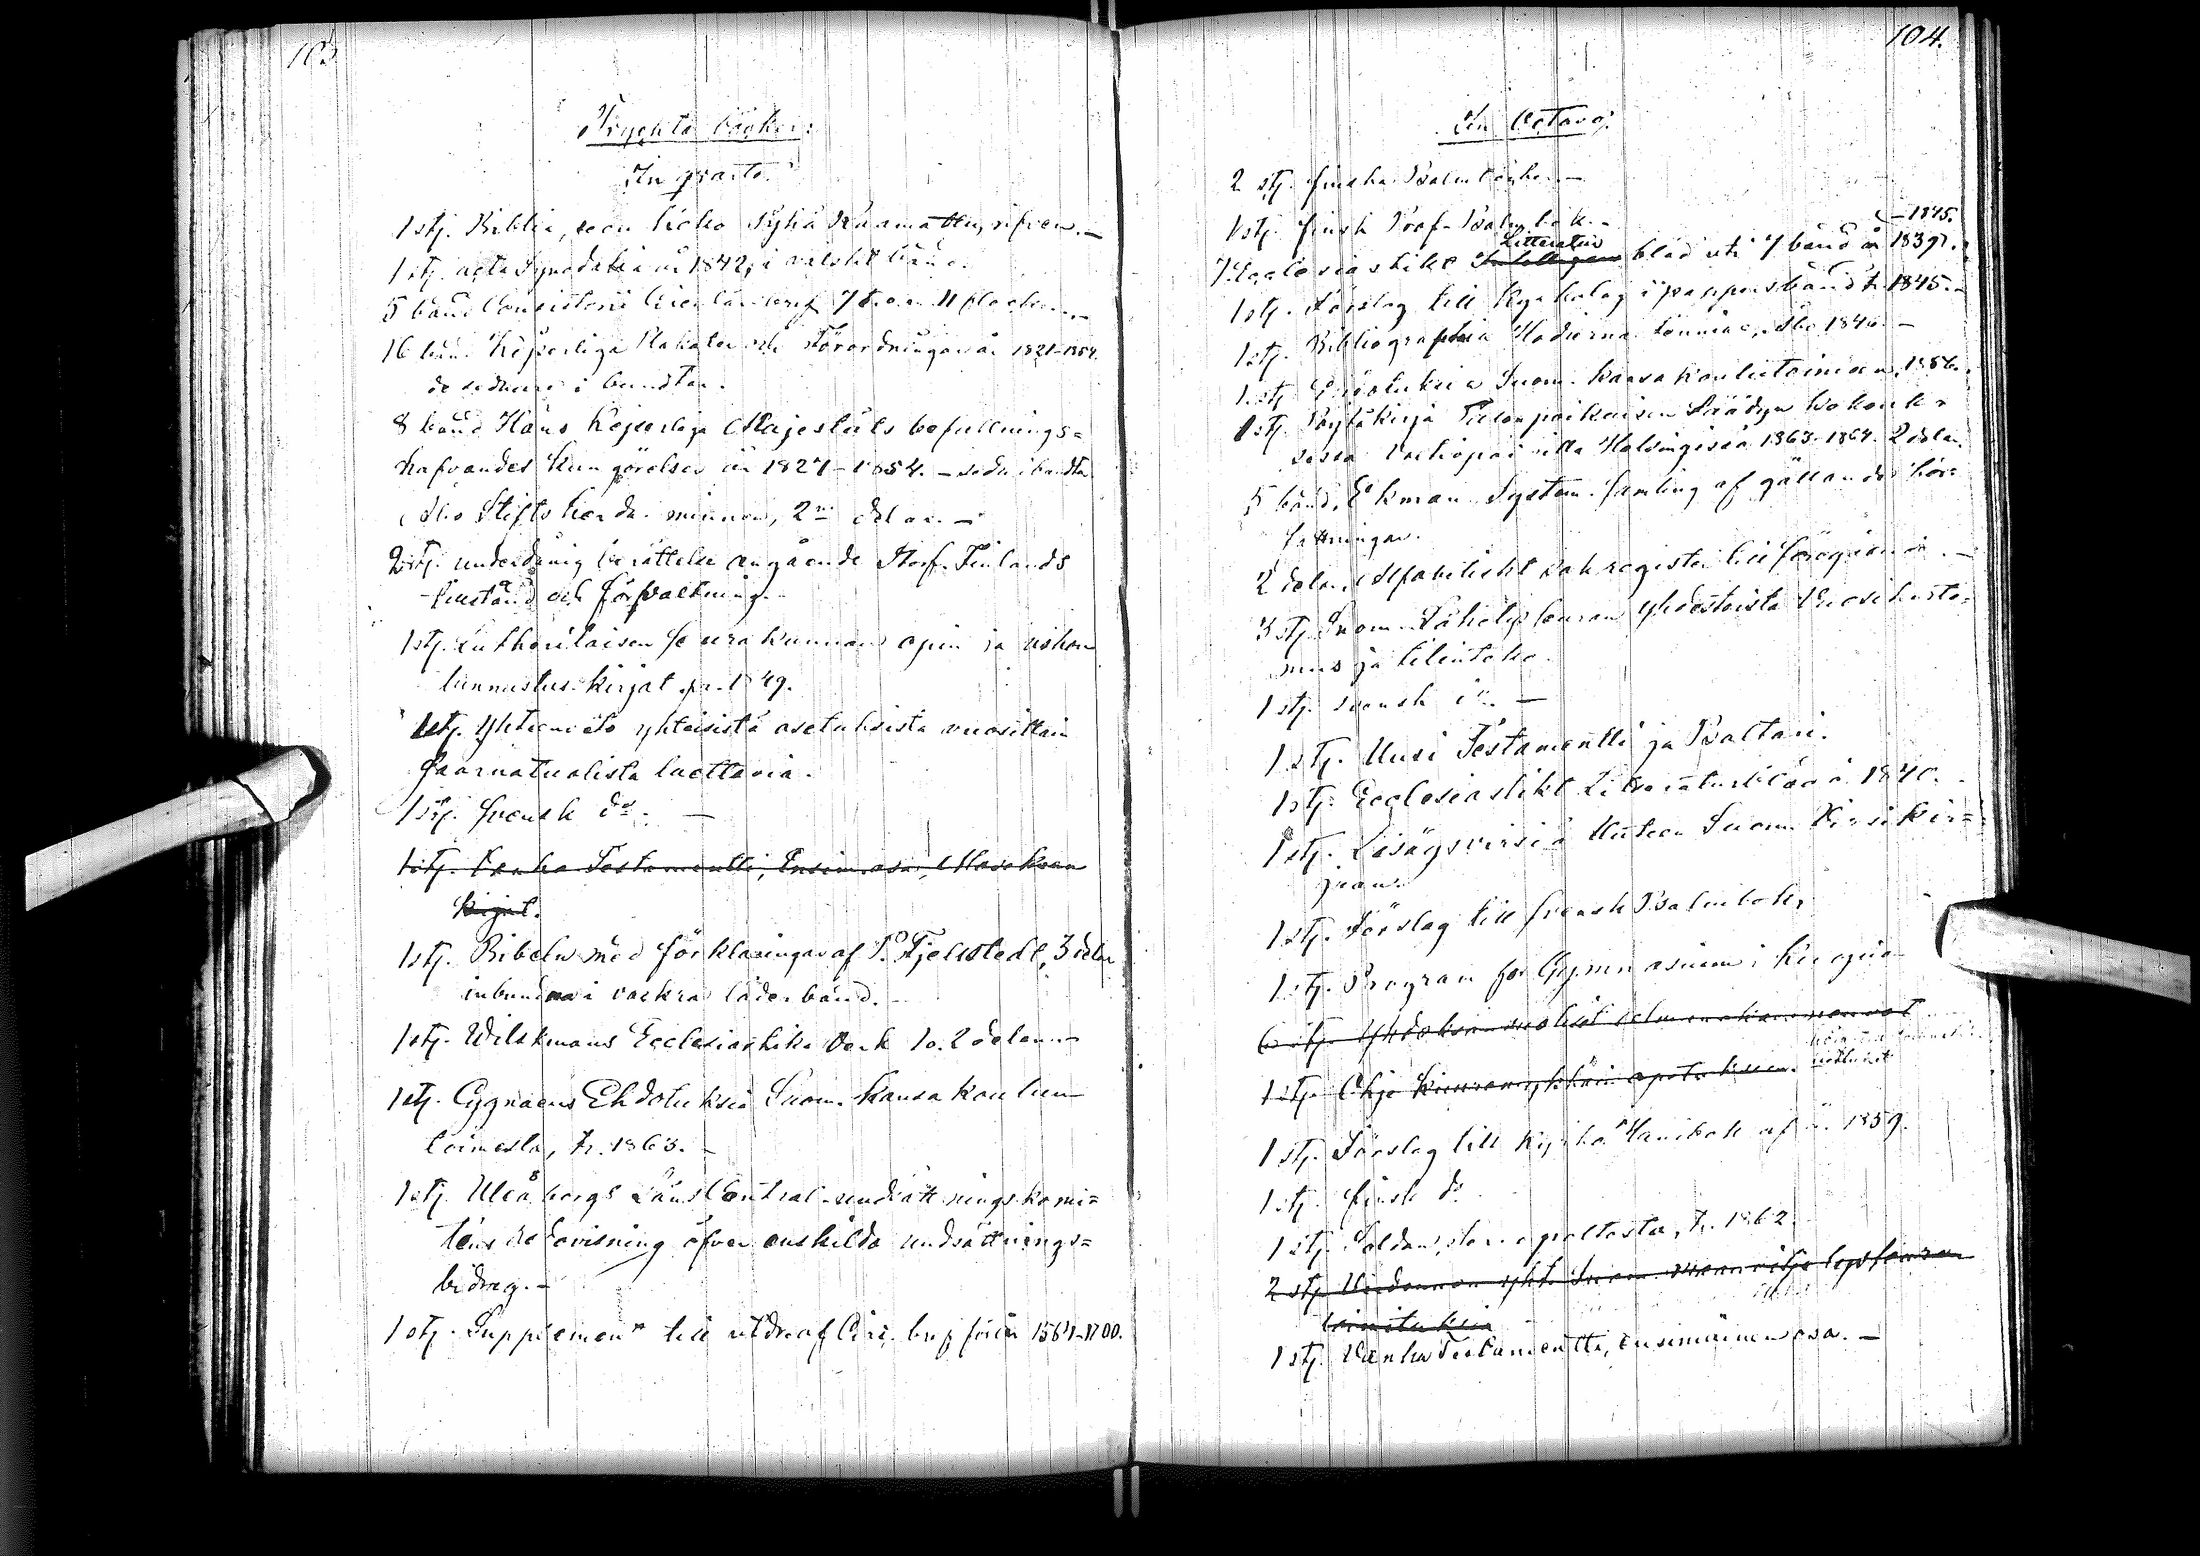 103
Tryckta böcker:
In qvarto:
1 stj. Biblia, se on koko Pyhä Raamattu, rifven. —
1 stj. acta Synodalia år 1842, i välskt band.
5 band Consistorii Circulärbref 7 t.o.m. 11 flocken. —
16 band Kejserliga Plakater och Förordningar år 1821-1854.
de sednare i bundtar.
8 band Hans Kejserliga Majestäts befallnings=
hafvandes Kungörelser år 1827-1854. — sedn. i bundtar
Åbo Stifts herda minnen, 2ne delar. —
2 stj. underdånig berättelse angående Storf. Finlands
tillstånd och förvaltning.
1 stj. Lutherilaisen Seurakunnan opin ja uskon
tunnustus kirjat, 1849.
1 stj. Yhteenveto yhteisistä asetuksista vuosittain
Saarnatuolista luettavia.
1 stj. Svensk do. —
1 stj. Vanha Testamentti, Ensim. osa, Moseksen
kirjat.
1 stj. Bibeln med förklaringar af P. Fjellstedt, 3 delar
inbundna i vackra läderband. —
1 stj. Wilskmans Ecclesiastika Verk 1 o. 2 delen. —
1 stj. Cygnaeus Ehdotuksia Suom. Kansa koulun
toimesta, tr. 1863. —
1 stj. Uleåborgs Läns Central-undsättningskomi=
téns redovisning öfver enskilda undsättnings=
bidrag. —
1 stj. Supplement till utdr. af Circ. bref för år 1564-1700.
104.
In Octavo:
2 stj. finska Psalmböcker. —
1 stj. finsk Prof-Psalmbok. —
— 1845.
Litteratur
7. Ecclesiastikt Intelligens blad uti 7 band år 1839.
1 stj. Förslag till Kyrkolag i pappersband tr. 1845. —
1 stj. Bibliographia Hodierna Fenniae, Åbo 1846. —
1 stj. Suom. Kansakoulutoimen, 1866.
1 stj. Pöytäkirja Talonpoikaisen Säädyn kokouk=
sessa Valtiopäivillä Helsingissä 1863-1864. 2 delar
5 band, Ekman System. Samling af gällande för=
fattningar.
2 delar, Alfabetiskt sakregister till föregående. —
3 stj. Suom. Lähetys seuran Yhdestoista Vuosikerto=
mus ja tilinteko.
1 stj. svensk do. —
1 stj. Uusi Testamentti ja Psaltari.
1 stj. Ecclesiastikt Litteraturblad år 1840.
1 stj. Lisäysvirsiä Uuteen Suom. Virsikir=
jaan.
1 stj. Förslag till svensk Psalmbok.
1 stj. Program for Gymnasium i Kuopio
6 stj.
1 stj. Ohje
1 stj. Förslag till Kyrko Handbok af år 1859.
1 stj. finsk do
1 stj. Soldan, tr. 1862.
2 stj. Suom.
toimituksia
1 stj. Vanha Testamentti, ensimäinen osa. —